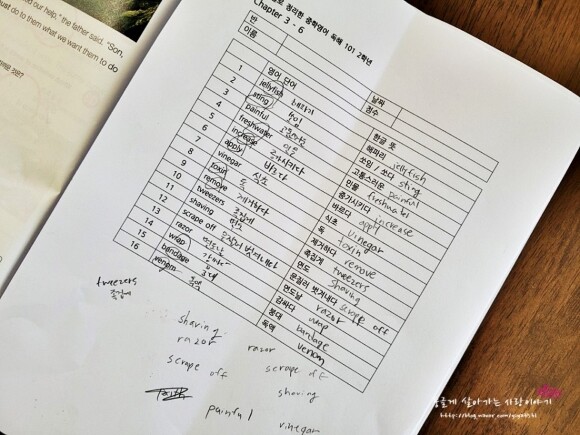 ed our help," the father said. "Son,
ust do to them what we want them to do
으로 정리한 중학영어 독해 101 2학년
Chapter 3 - 6
반
이름
날짜
점수
영어 단어
한글 뜻
1 jellyfish 해파리
해파리 jellyfish
2 sting 쏘임
쏘임 / 쏘다 sting
3 painful 고통스러운
고통스러운 painful
4 freshwater 민물
민물 freshwater
5 increase 증가시키다
증가시키다 increase
6 apply 바르다
바르다 apply
7 vinegar 식초
식초 vinegar
8 toxin 독
독 toxin
9 remove 제거하다
제거하다 remove
10 tweezers 족집게
족집게 tweezers
11 shaving 면도
면도 shaving
12 scrape off 문질러 벗겨내다
문질러 벗겨내다 scrape off
13 razor 면도날
면도날 razor
14 wrap 감싸다
감싸다 wrap
15 bandage 붕대
붕대 bandage
16 venom 독액
독액 venom
tweezers
족집게
shaving
razor
razor
scrape off
scrape off
shaving
painful
vinegar
살아가는 사랑이야기